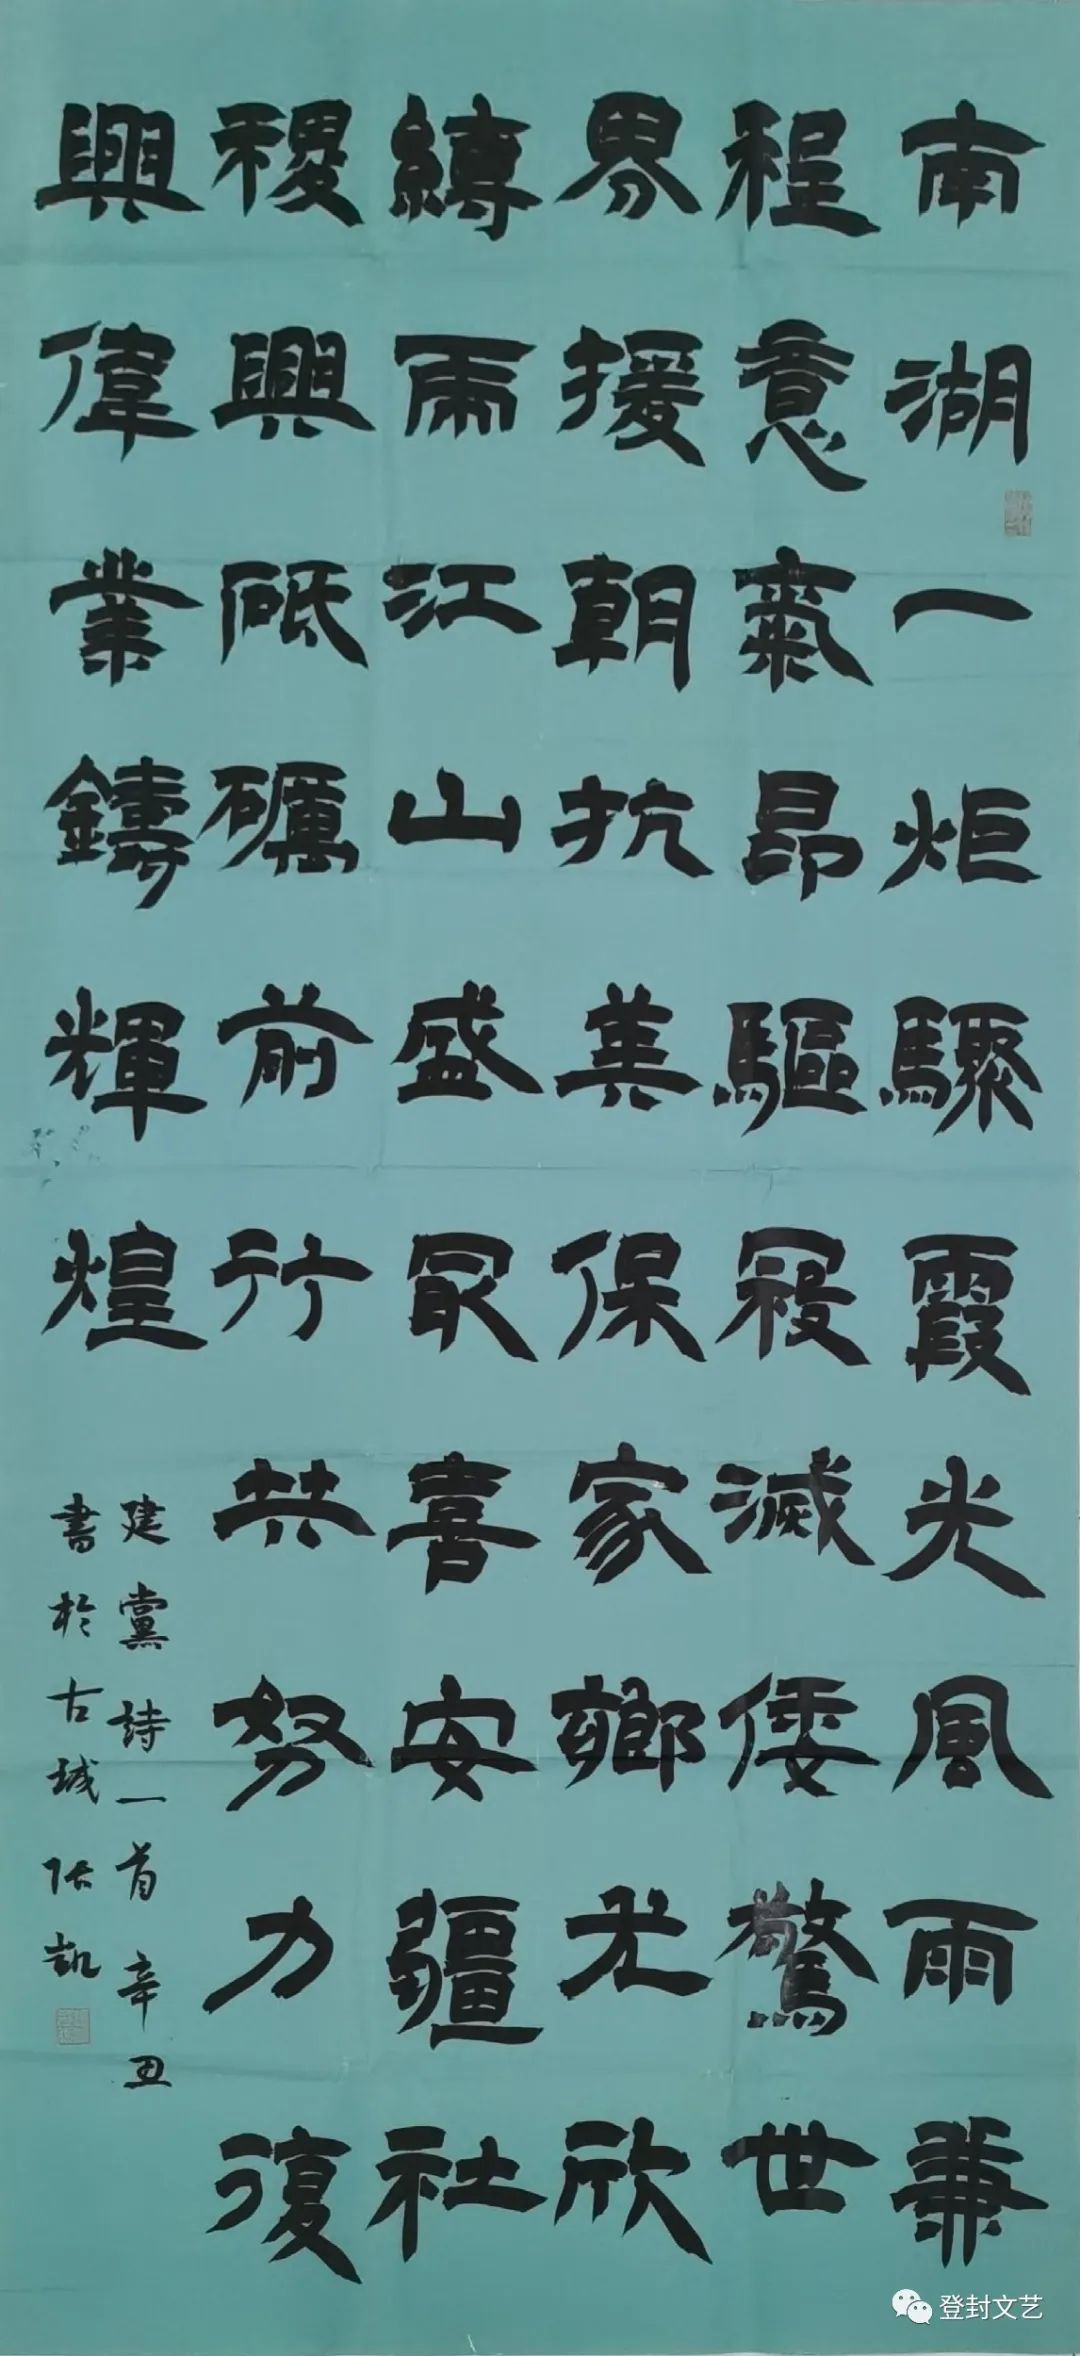 南湖一炬驟霞光風雨兼
程意氣昂驅寇滅倭驚世
界援朝抗美保家鄉尤欣
縛虎江山盛最喜安疆社
稷興砥礪前行共努力復
興偉業鑄輝煌
建黨詩一首辛丑
書於古城張凱
登封文艺